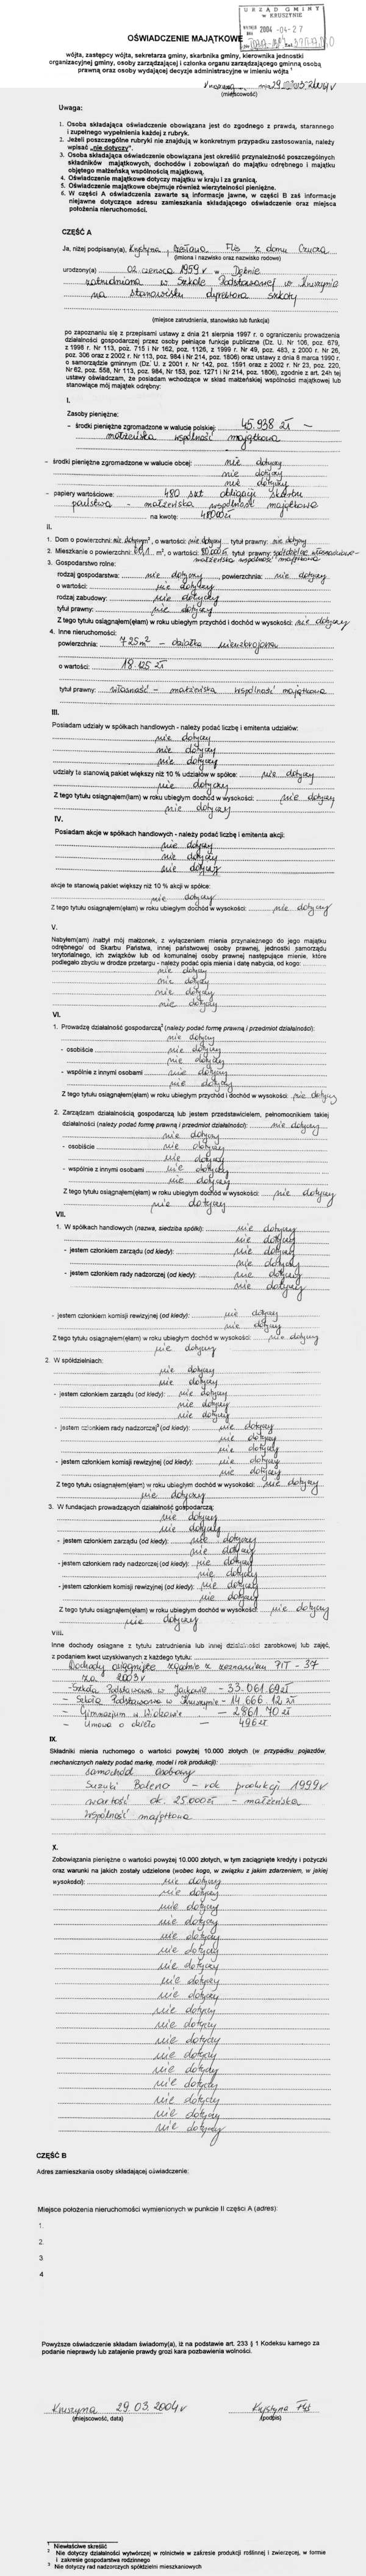 URZĄD GMINY
w KRUSZYNIE
2004 -04- 27
OŚWIADCZENIE MAJĄTKOWE
wójta, zastępcy wójta, sekretarza gminy, skarbnika gminy, kierownika jednostki
organizacyjnej gminy, osoby zarządzającej i członka organu zarządzającego gminną osobą
prawną oraz osoby wydającej decyzje administracyjne w imieniu wójta ¹
Kruszyna, dnia 29.03.2004 r
(miejscowość)
Uwaga:
1. Osoba składająca oświadczenie obowiązana jest do zgodnego z prawdą, starannego
i zupełnego wypełnienia każdej z rubryk.
2. Jeżeli poszczególne rubryki nie znajdują w konkretnym przypadku zastosowania, należy
wpisać „nie dotyczy".
3. Osoba składająca oświadczenie obowiązana jest określić przynależność poszczególnych
składników majątkowych, dochodów i zobowiązań do majątku odrębnego i majątku
objętego małżeńską wspólnością majątkową.
4. Oświadczenie majątkowe dotyczy majątku w kraju i za granicą.
5. Oświadczenie majątkowe obejmuje również wierzytelności pieniężne.
6. W części A oświadczenia zawarte są informacje jawne, w części B zaś informacje
niejawne dotyczące adresu zamieszkania składającego oświadczenie oraz miejsca
położenia nieruchomości.
CZĘŚĆ A
Ja, niżej podpisany(a), Krystyna, Czesława Fleś z domu Czucza
(imiona i nazwisko oraz nazwisko rodowe)
urodzony(a) 02 czerwca 1959 r w Dębnie
zatrudniona w Szkole Podstawowej w Kruszynie
na stanowisku dyrektora szkoły
(miejsce zatrudnienia, stanowisko lub funkcja)
po zapoznaniu się z przepisami ustawy z dnia 21 sierpnia 1997 r. o ograniczeniu prowadzenia
działalności gospodarczej przez osoby pełniące funkcje publiczne (Dz. U. Nr 106, poz. 679,
z 1998 r. Nr 113, poz. 715 i Nr 162, poz. 1126, z 1999 r. Nr 49, poz. 483, z 2000 r. Nr 26,
poz. 306 oraz z 2002 r. Nr 113, poz. 984 i Nr 214, poz. 1806) oraz ustawy z dnia 8 marca 1990 r.
o samorządzie gminnym (Dz. U. z 2001 r. Nr 142, poz. 1591 oraz z 2002 r. Nr 23, poz. 220,
Nr 62, poz. 558, Nr 113, poz. 984, Nr 153, poz. 1271 i Nr 214, poz. 1806), zgodnie z art. 24h tej
ustawy oświadczam, że posiadam wchodzące w skład małżeńskiej wspólności majątkowej lub
stanowiące mój majątek odrębny:
I.
Zasoby pieniężne:
– środki pieniężne zgromadzone w walucie polskiej: 45.938 zł –
małżeńska wspólność majątkowa
– środki pieniężne zgromadzone w walucie obcej: nie dotyczy
nie dotyczy
nie dotyczy
– papiery wartościowe: 480 szt. obligacji skarbu
państwa – małżeńska wspólność majątkowa
na kwotę: 48000 zł
II.
1. Dom o powierzchni: nie dotyczy m², o wartości: nie dotyczy tytuł prawny: nie dotyczy
2. Mieszkanie o powierzchni: m², o wartości: tytuł prawny: spółdzielcze własnościowe –
małżeńska wspólność majątkowa
3. Gospodarstwo rolne:
rodzaj gospodarstwa: nie dotyczy, powierzchnia: nie dotyczy
o wartości: nie dotyczy
rodzaj zabudowy: nie dotyczy
tytuł prawny: nie dotyczy
Z tego tytułu osiągnąłem(ęłam) w roku ubiegłym przychód i dochód w wysokości: nie dotyczy
4. Inne nieruchomości:
powierzchnia: 725 m² – działka nieuzbrojona
o wartości: 18.125 zł
tytuł prawny: własność – małżeńska wspólność majątkowa
III.
Posiadam udziały w spółkach handlowych - należy podać liczbę i emitenta udziałów:
nie dotyczy
nie dotyczy
nie dotyczy
udziały te stanowią pakiet większy niż 10 % udziałów w spółce: nie dotyczy
nie dotyczy
Z tego tytułu osiągnąłem(ęłam) w roku ubiegłym dochód w wysokości: nie dotyczy
nie dotyczy
IV.
Posiadam akcje w spółkach handlowych - należy podać liczbę i emitenta akcji:
nie dotyczy
nie dotyczy
nie dotyczy
akcje te stanowią pakiet większy niż 10 % akcji w spółce:
nie dotyczy
Z tego tytułu osiągnąłem(ęłam) w roku ubiegłym dochód w wysokości: nie dotyczy
V.
Nabyłem(am) /nabył mój małżonek, z wyłączeniem mienia przynależnego do jego majątku
odrębnego/ od Skarbu Państwa, innej państwowej osoby prawnej, jednostki samorządu
terytorialnego, ich związków lub od komunalnej osoby prawnej następujące mienie, które
podlegało zbyciu w drodze przetargu - należy podać opis mienia i datę nabycia, od kogo:
nie dotyczy
nie dotyczy
nie dotyczy
nie dotyczy
VI.
1. Prowadzę działalność gospodarczą² (należy podać formę prawną i przedmiot działalności):
nie dotyczy
- osobiście nie dotyczy
nie dotyczy
- wspólnie z innymi osobami nie dotyczy
nie dotyczy
Z tego tytułu osiągnąłem(ęłam) w roku ubiegłym przychód i dochód w wysokości: nie dotyczy
2. Zarządzam działalnością gospodarczą lub jestem przedstawicielem, pełnomocnikiem takiej
działalności (należy podać formę prawną i przedmiot działalności): nie dotyczy
nie dotyczy
- osobiście nie dotyczy
nie dotyczy
- wspólnie z innymi osobami nie dotyczy
nie dotyczy
Z tego tytułu osiągnąłem(ęłam) w roku ubiegłym dochód w wysokości: nie dotyczy
nie dotyczy
VII.
1. W spółkach handlowych (nazwa, siedziba spółki): nie dotyczy
nie dotyczy
- jestem członkiem zarządu (od kiedy): nie dotyczy
nie dotyczy
- jestem członkiem rady nadzorczej (od kiedy): nie dotyczy
nie dotyczy
- jestem członkiem komisji rewizyjnej (od kiedy): nie dotyczy
nie dotyczy
Z tego tytułu osiągnąłem(ęłam) w roku ubiegłym dochód w wysokości: nie dotyczy
nie dotyczy
2. W spółdzielniach:
nie dotyczy
nie dotyczy
- jestem członkiem zarządu (od kiedy): nie dotyczy
nie dotyczy
nie dotyczy
- jestem członkiem rady nadzorczej³ (od kiedy): nie dotyczy
nie dotyczy
nie dotyczy
- jestem członkiem komisji rewizyjnej (od kiedy): nie dotyczy
nie dotyczy
Z tego tytułu osiągnąłem(ęłam) w roku ubiegłym dochód w wysokości: nie dotyczy
nie dotyczy
3. W fundacjach prowadzących działalność gospodarczą:
nie dotyczy
nie dotyczy
- jestem członkiem zarządu (od kiedy): nie dotyczy
nie dotyczy
- jestem członkiem rady nadzorczej (od kiedy): nie dotyczy
nie dotyczy
- jestem członkiem komisji rewizyjnej (od kiedy): nie dotyczy
nie dotyczy
Z tego tytułu osiągnąłem(ęłam) w roku ubiegłym dochód w wysokości: nie dotyczy
nie dotyczy
VIII.
Inne dochody osiągane z tytułu zatrudnienia lub innej działalności zarobkowej lub zajęć,
z podaniem kwot uzyskiwanych z każdego tytułu:
Dochody osiągnięte zgodnie z zeznaniem PIT - 37
za 2003 r
- Szkoła Podstawowa w Jackowie - 33.061.69 zł
- Szkoła Podstawowa w Kruszynie - 14.666.12 zł
- Gimnazjum w Widzowie - 2861.70 zł
- Umowa o dzieło - 496 zł
IX.
Składniki mienia ruchomego o wartości powyżej 10.000 złotych (w przypadku pojazdów
mechanicznych należy podać markę, model i rok produkcji):
samochód osobowy
Suzuki Baleno - rok produkcji 1999 r
wartość ok. 25.000 zł - małżeńska
wspólność majątkowa
X.
Zobowiązania pieniężne o wartości powyżej 10.000 złotych, w tym zaciągnięte kredyty i pożyczki
oraz warunki na jakich zostały udzielone (wobec kogo, w związku z jakim zdarzeniem, w jakiej
wysokości): nie dotyczy
nie dotyczy
nie dotyczy
nie dotyczy
nie dotyczy
nie dotyczy
nie dotyczy
nie dotyczy
nie dotyczy
nie dotyczy
nie dotyczy
nie dotyczy
nie dotyczy
nie dotyczy
nie dotyczy
nie dotyczy
nie dotyczy
nie dotyczy
CZĘŚĆ B
Adres zamieszkania osoby składającej oświadczenie:
Miejsce położenia nieruchomości wymienionych w punkcie II części A (adres):
1.
2.
3
4
Powyższe oświadczenie składam świadomy(a), iż na podstawie art. 233 § 1 Kodeksu karnego za
podanie nieprawdy lub zatajenie prawdy grozi kara pozbawienia wolności.
Kruszyna 29.03.2004 r Krystyna Fleś
(miejscowość, data) (podpis)
¹ Niewłaściwe skreślić
² Nie dotyczy działalności wytwórczej w rolnictwie w zakresie produkcji roślinnej i zwierzęcej, w formie
i zakresie gospodarstwa rodzinnego
³ Nie dotyczy rad nadzorczych spółdzielni mieszkaniowych